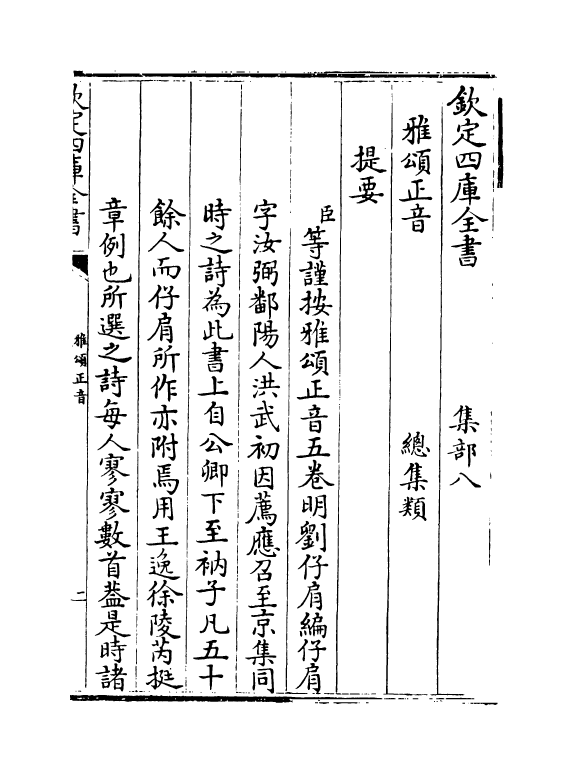 欽定四庫全書　集部八
雅頌正音　總集類
提要
臣等謹按雅頌正音五卷明劉仔肩編仔肩
字汝弼鄱陽人洪武初因薦應召至京集同
時之詩為此書上自公卿下至衲子凡五十
餘人而仔肩所作亦附焉用王逸徐陵芮挺
章例也所選之詩每人寥寥數首葢是時諸
欽定四庫全書
雅頌正音
一